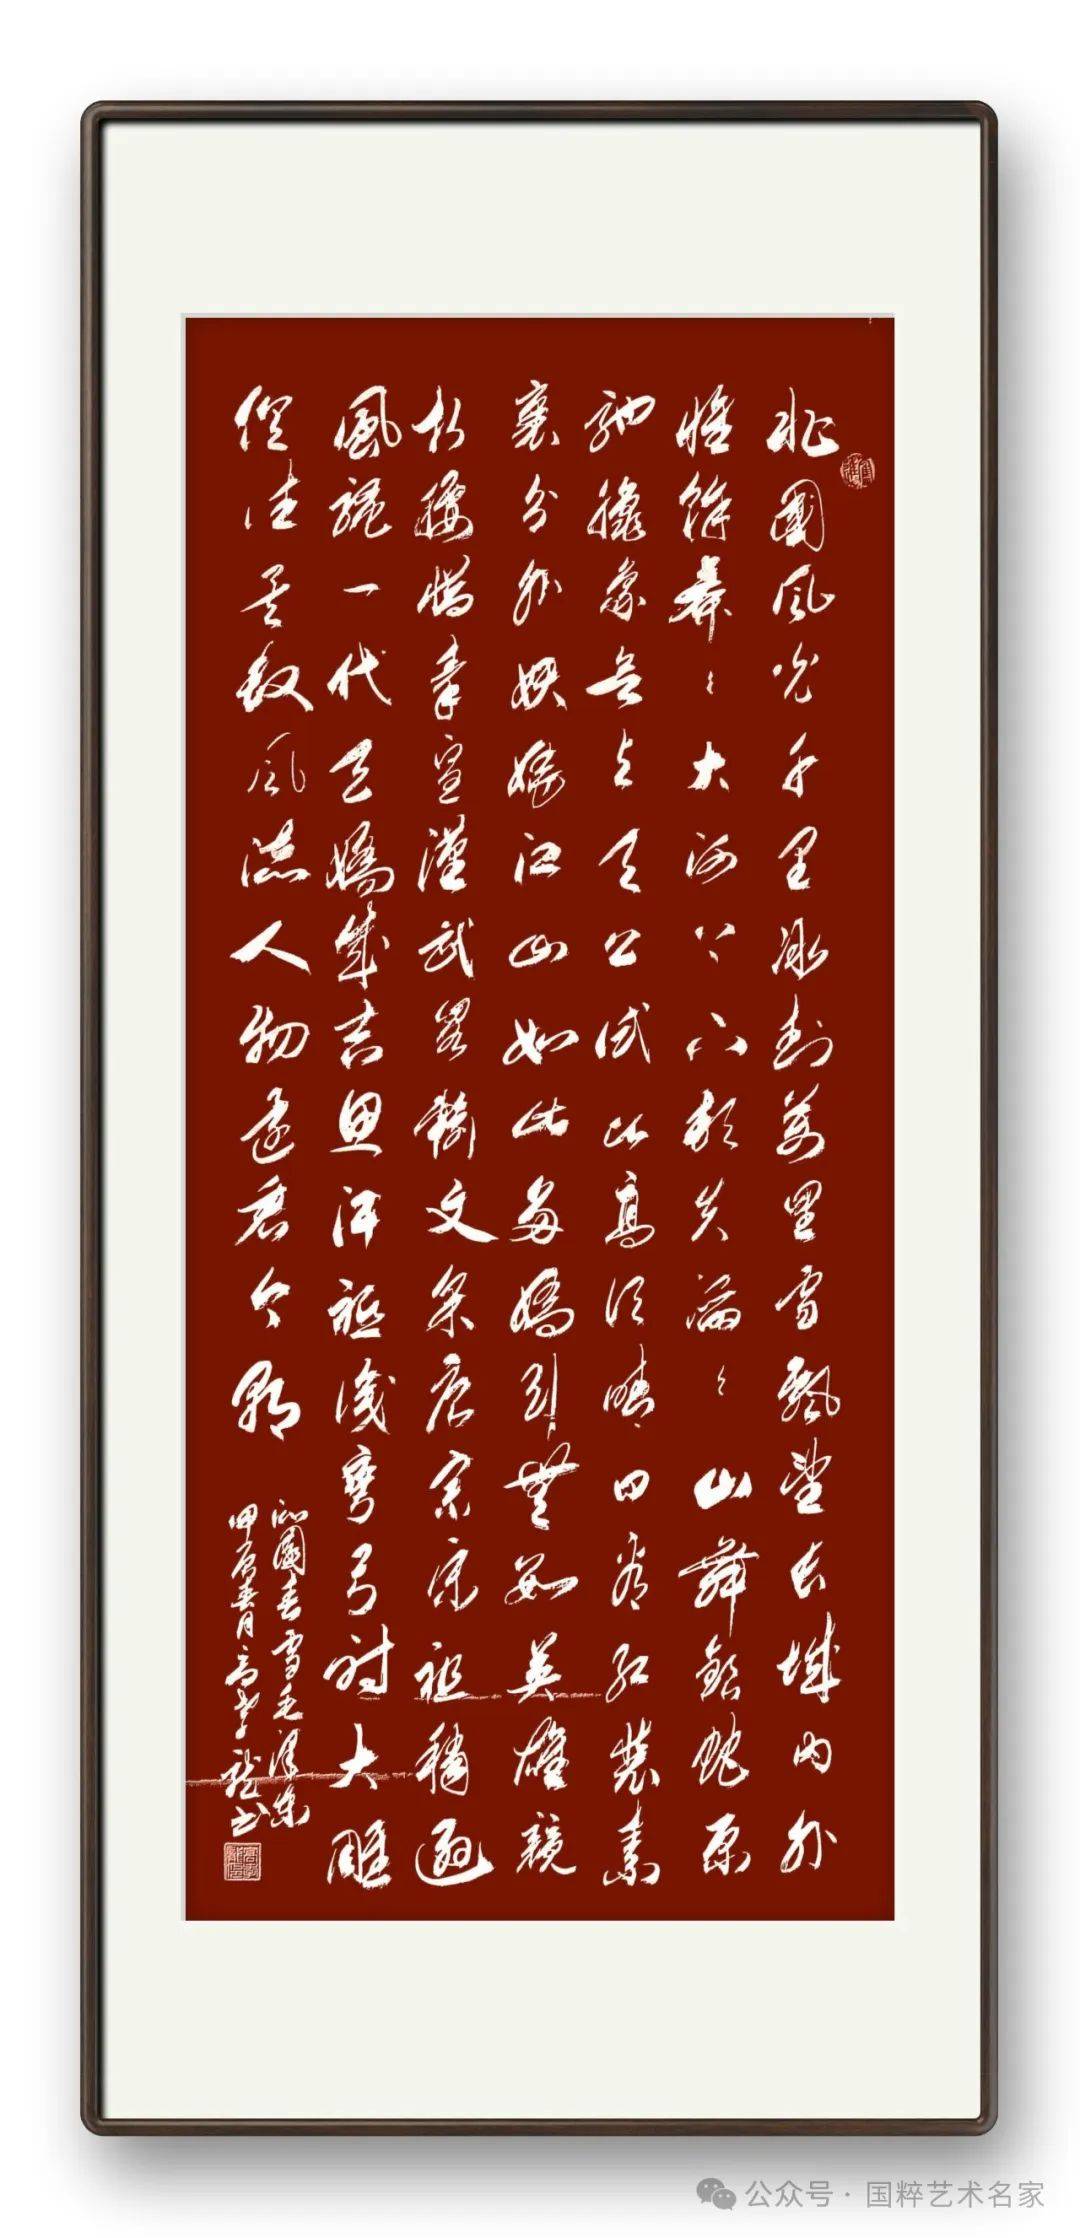 北國风光千里冰封萬里雪飄望长城内外
惟餘莽々大河上下頓失滔々山舞銀蛇原
馳臘象欲与天公试比高须晴日看红裝素
裹分外妖嬈江山如此多嬌引無數英雄競
折腰惜秦皇漢武略輸文采唐宗宋祖稍遜
風騷一代天嬌成吉思汗祗識彎弓射大雕
俱往矣數风流人物還看今朝
沁園春雪毛澤东
甲辰春月高孝龍书
公众号·国粹艺术名家